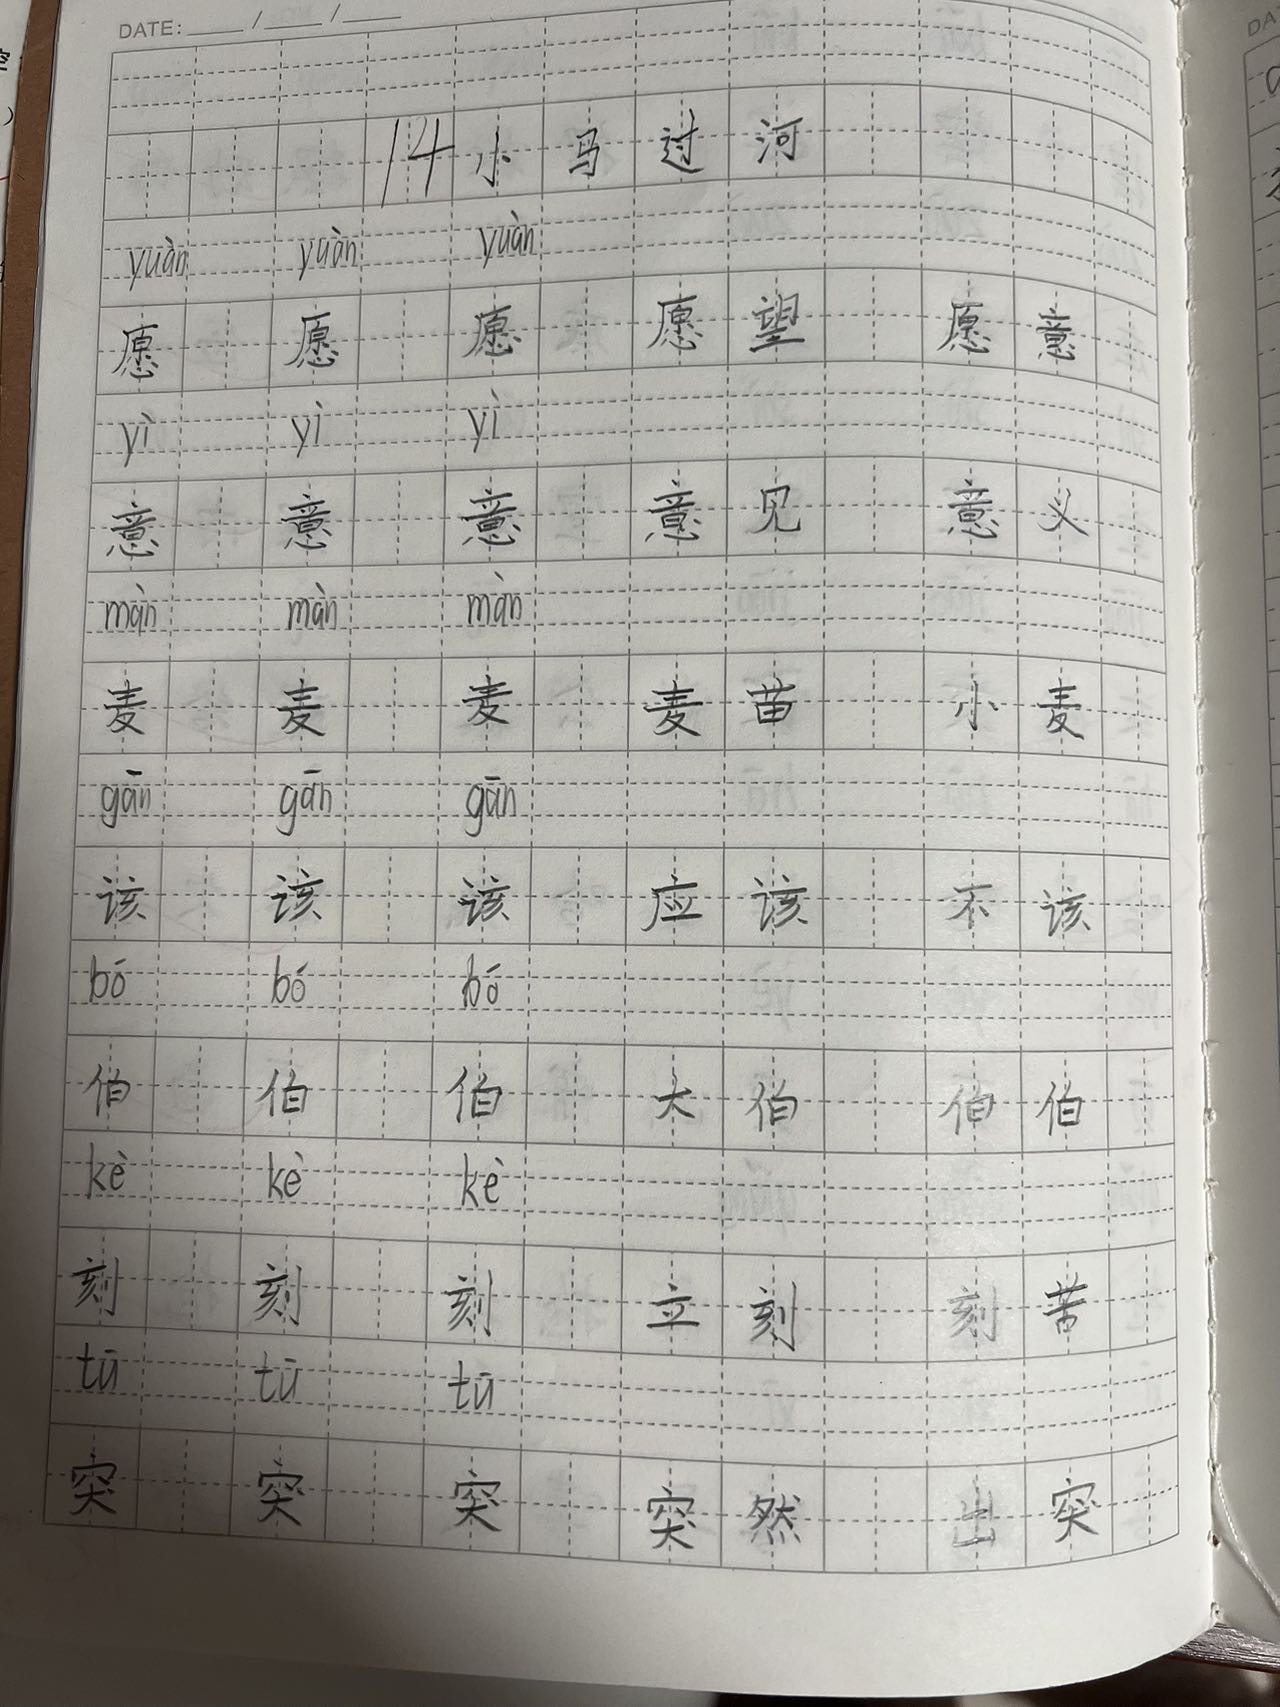 DATE: ____ / ____ / ____
14 小马过河
yuàn yuàn yuàn
愿 愿 愿 愿望 愿意
yì yì yì
意 意 意 意见 意义
màn màn màn
麦 麦 麦 麦苗 小麦
gān gān gān
该 该 该 应该 不该
bó bó bó
伯 伯 伯 大伯 伯伯
kè kè kè
刻 刻 刻 立刻 刻苦
tū tū tū
突 突 突 突然 出突